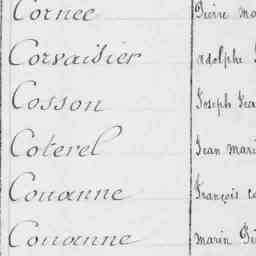 Cornee Pierre
Corvaisier adolphe
Cosson Joseph
Coterel Jean mari
Couanne François
Couanne marin